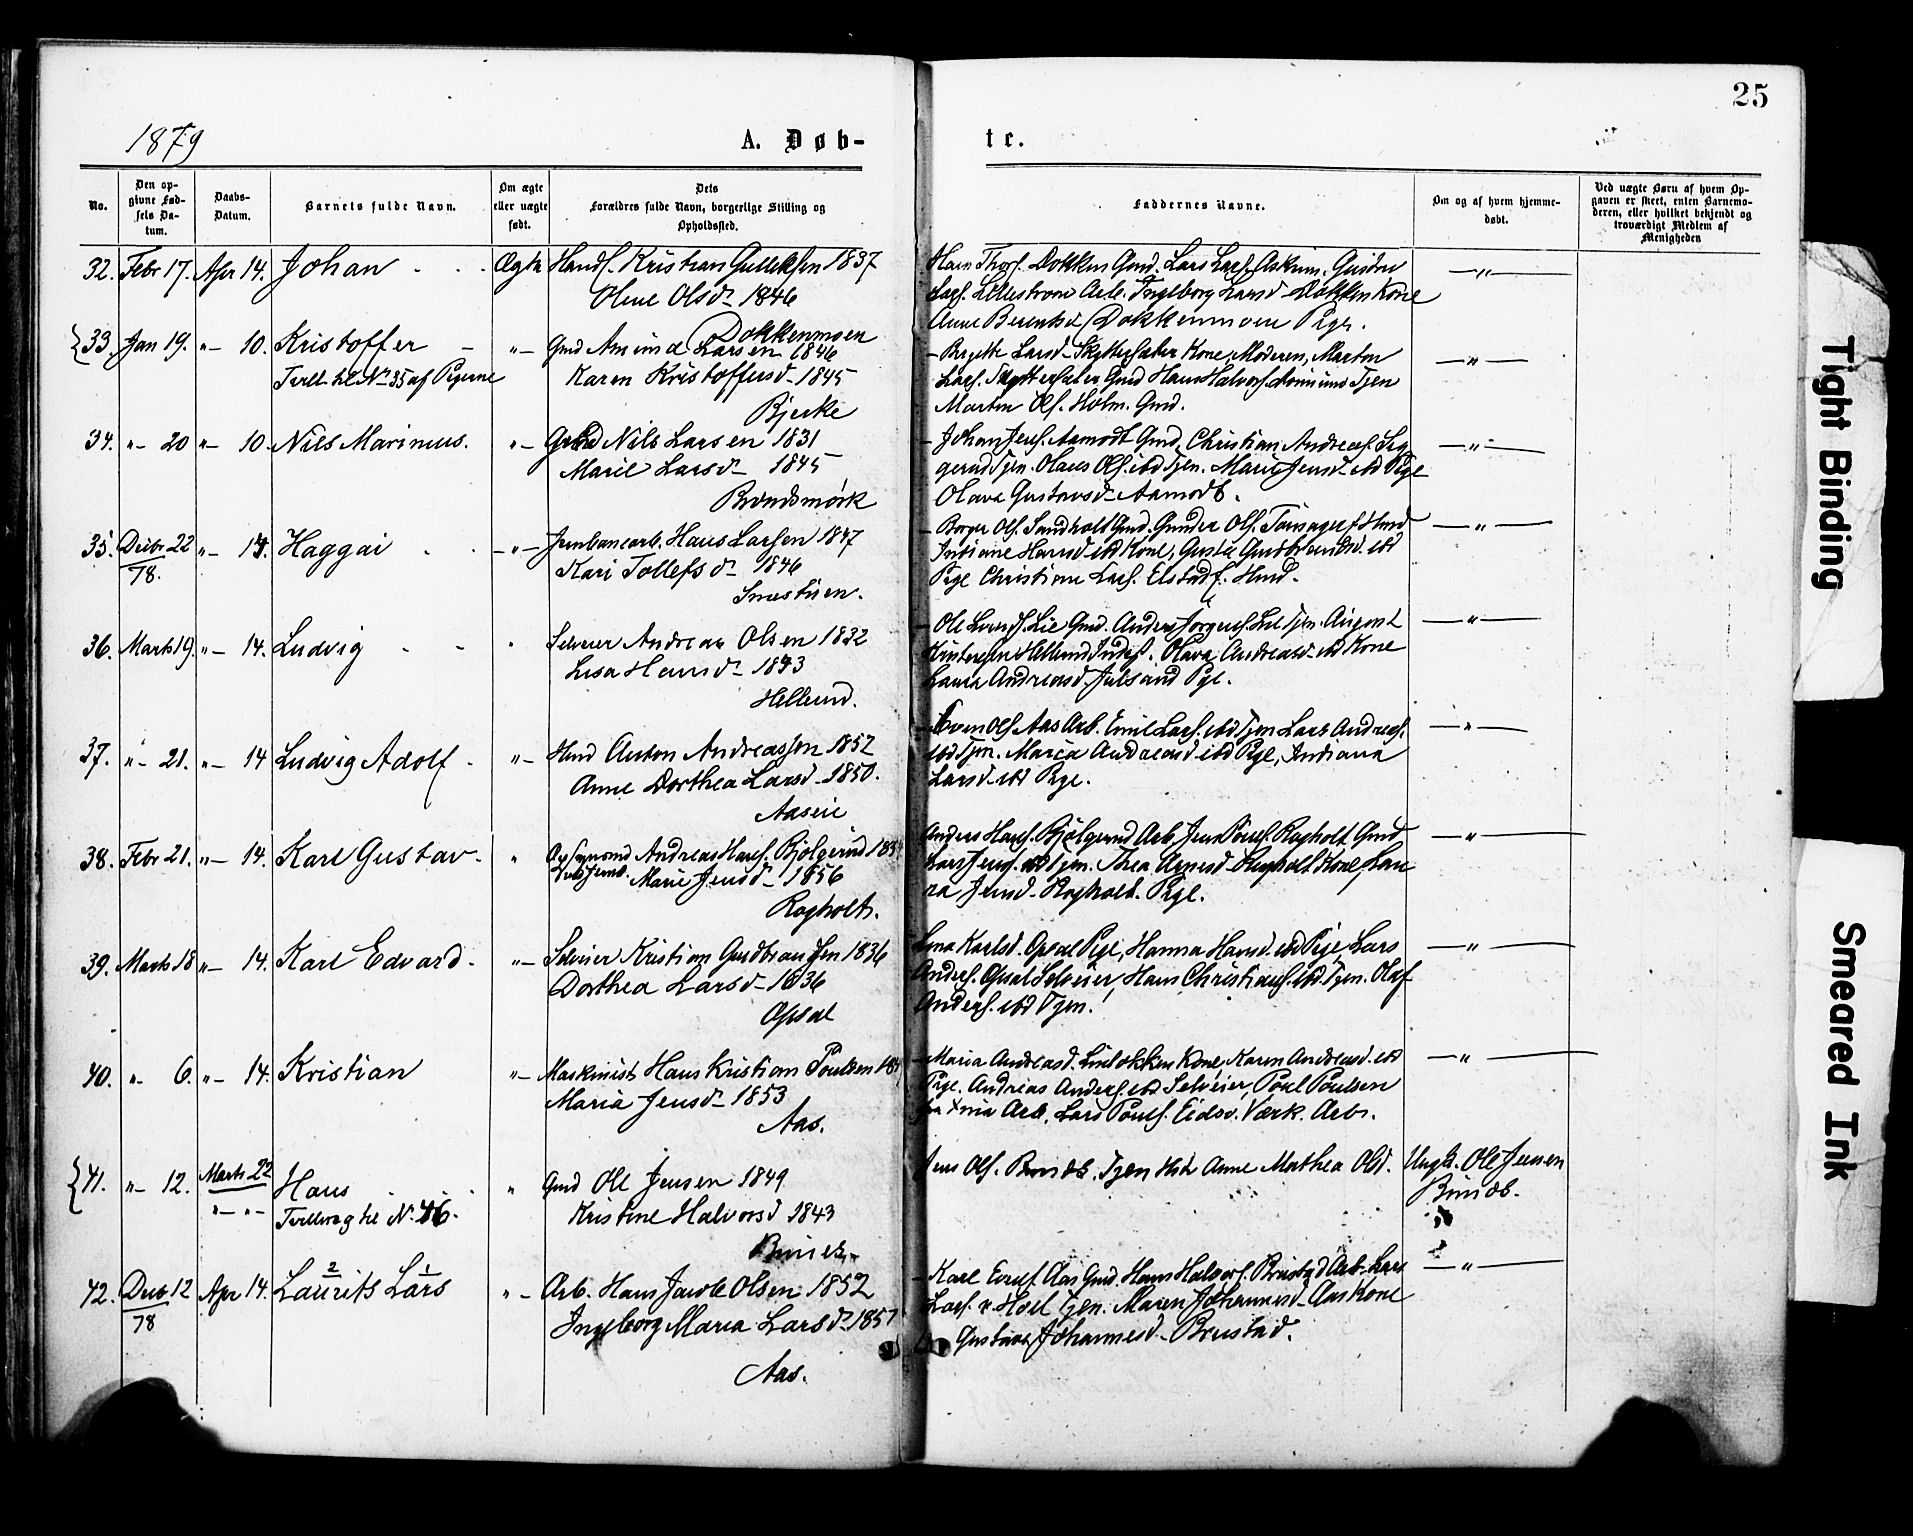 25
1879
A. Døb-
te.
No.
Den op-
givne Fød-
sels Da-
tum.
Daabs-
Datum.
Barnets fulde Navn.
Om ægte
eller uægte
født.
Dets
Forældres fulde Navn, borgerlige Stilling og
Opholdssted.
Faddernes Navne.
Om og af hvem hjemme-
døbt.
Ved uægte Børn af hvem Op-
gaven er skeet, enten Barnemo-
deren, eller hvilket bekjendt og
troværdigt Medlem af
Menigheden
32. Febr 17. Apr 14. Johan - - - Ægte Handl. Kristian Gulliksen 1837
Oline Olsd. 1846
Dokkenmoen
Hans Thors. Dokken Gmd. Lars Lars. Askrim. Gustav
Lars. Lillestrøm Arb. Ingeborg Larsd. Dokken Kone
Anne Berentsd. Dokkenmoen Pige.
— " —
33. Jan 19. " — 10. Kristoffer — " — Gmd Amund Larsen 1846
Tvill. til No 35 af Pigerne
Karen Kristoffersd. 1845
Bjerke
Birgitte Larsd. Skyttersæter Kone, Moderen, Martin
Lars. Skyttersæter Gmd Hans Halvors. Tjen
Martin Ols. Holm. Gmd.
— " —
34. " — 20 " — 10. Nils Marinus. " — Nils Larsen 1831
Marie Larsd. 1845
Brondsmørk
Johan Jens. Aamodt Gmd, Christian Andreas.
Tjen. Olaus Ols. ibd Tjen. Marie Jensd. ibd Pige
Olava Gustavsd. Aamodt.
— " —
35. Decbr 22 " — 14. Haggai - - — " — Jernbanearb. Hans Larsen 1847
78.
Kari Tollefsd. 1846
Smestuen.
Borger Ols. Sandholt Gmd. Gunder Ols. Husd
Indiane Hansd. ibd Kone, Gusta Gudbrandsd. ibd
Pige Christian Lars. Elstad f. Hmd.
— " —
36. Marts 19. " — 14. Ludvig - - - Selveier Andreas Olsen 1832
Lisa Hansd. 1843
Hellund.
Ole Lie Gmd. Anders Jørgens. Lie Tjen. August
Hellund Inds. Olava Andreasd. ibd Kone
Laura Andreasd. Julsand Pge.
— " —
37. " — 21. " — 14 Ludvig Adolf - " — Hmd Anton Andreassen 1852
Anne Dorthea Larsd. 1850.
Aaseie
Even Ols. Aas Arb. Emil Lars. ibd Tjen Lars Andreas.
ibd Tjen. Maria Andreasd ibd Pge, Indiana
Larsd. ibd Pge.
— " —
38. Febr 21. " — 14. Karl Gustav - " Andreas Hans. Bjølgerud
Marie Jensd. 1856
Ragholt.
Anders Hans. Bjølgerud Arb. Jens Pouls. Ragholt Gmd
Lars Jens. ibd Tjen. Thea Arnesd. Ragholt Kone, Lau
ra Jensd. Ragholt. Pge.
— " —
39. Marts 18 " — 14. Karl Edvard - " — Selveier Kristian Gudbrandsen 1836
Dorthea Larsd. 1836
Opsal
Lina Karlsd. Opsal Pge, Hanna Hansd. ibd Pige, Lars
Anders. Opsal Selveier, Hans Christians. ibd. Tjen. Olaf
Anders. ibd Tjen.
— " —
40. " — 6. " — 14. Kristian " — Maskinist Hans Kristian Poulsen
Maria Jensd. 1853
Aas.
Maria Andreasd. Lindokken Kone, Karen Andreasd. ibd
Pge. Andreas Anders. ibd Selveier, Poul Poulsen
fra Xnia Arb. Lars Pouls. Eidsv. Værk. Arb.
— " —
41. " — 12. Marts 22 Hans " Gmd Ole Jensen 1849
" — " — Tvilling til No. 46.
Kristine Halvorsd 1843
Jens Ols. Tjen Anne Mathea Old.
Ungk. Ole Jensen
42. Decb 12 Apr 14. Laurits Lars " — Arb. Hans Jacob Olsen 1852
2 1
78
Ingeborg Maria Larsd. 1857
Aas.
Karl Aas Gmd. Hans Halvors. Brustad Arb. Lars
Lars. v. Hoel Tjen. Maren Johannesd. Aas Kone
Gustava Johannesd. Brustad.
— " —
Tight Binding
Smeared Ink